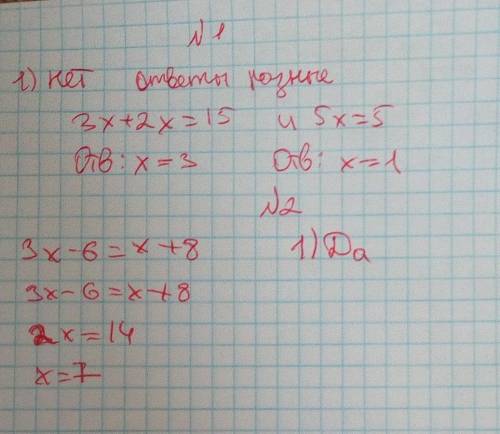 №1
1) нет ответы разные
3x+2x=15 и 5x=5
Отв: x=3 Отв: x=1
№2
3x-6=x+8 1) Да
3x-6=x+8
2x=14
x=7